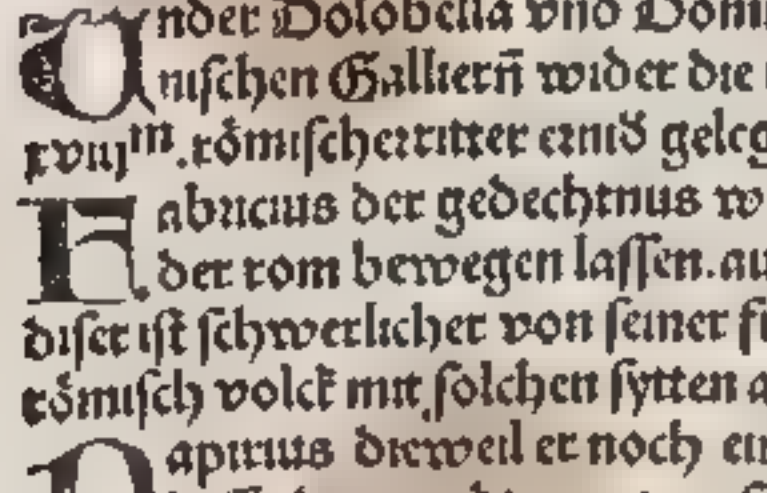 Under Dolobella vnd Domi
nischen Galliern̄ wider die
xviijm. rőmischer ritter ernid̕ geleg
Fabricius der gedechtnus w
der rom bewegen lassen. au
diser ist schwerlicher von seiner fr
rőmisch volck mit solchen sytten a
Papirius dieweil er noch ein